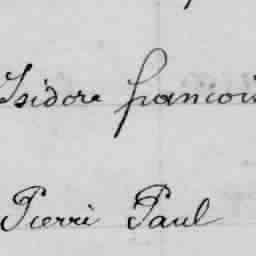 Isidore francois
Pierri Paul